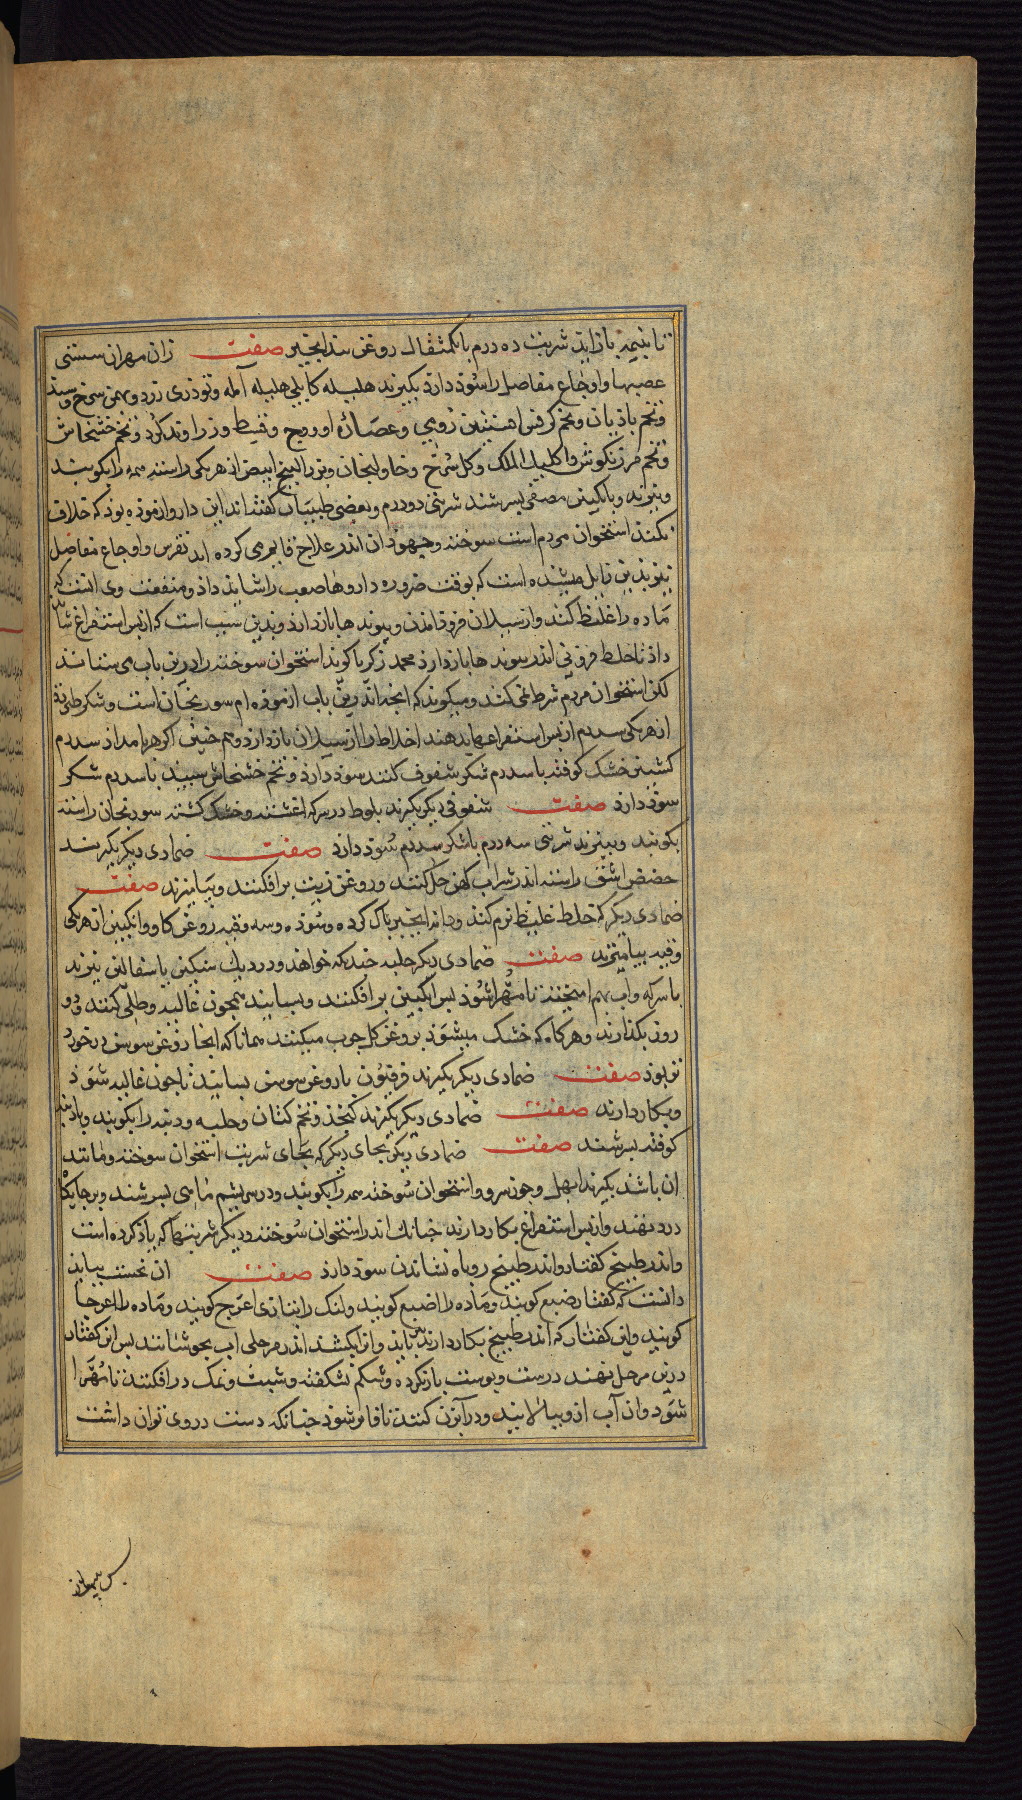 تا بنیمه بازاید شربت ده درم با یکمثقال روغن بیدانجیر صفت زان مهران سستی
عصبها و اوجاع مفاصل را سوذ دارد بکیرند هلیله کابلی هلیله آمله و توذری زرد و بهمن سرخ و سپید
و تخم باذیان و تخم کرفس افسنتین رومی و عصاره او روج و قنیط و زراوند کرد و تخم خشخاش
و تخم مرزنکوش و اکلیل الملک و کل سرخ و خاولنجان و بزر البنج ابیض از هر یکی راستد همه را بکوبند
و ببزند و بانکبین مصفی بسرشند شربتی دو درم و بعضی طبیبان کفته‌اند این دارو ازموذه بوذ که خلاف
نکند استخوان مردم است سوخته و جهوذان اندر علاج
ببزند بن است که بوقت ضروره داروها صعب را شاید داذ و منفعت وی انست که
ماده را غلیظ کند و از سیلان فروذ امذن و پیوند ها بازدارذ و بدین سبب است که از پس استفراغ شاید
داذ تا خلط فزونی اندر پیوند ها بازدارذ محمد زکریا کوید استخوان سوخته را درین باب می ستایند
لکن استخوان مردم شرط نمی کنند و میکوید که انجه اندرین باب ازموذه ام سورنجان است و شکر طبرزذ
از هر یکی سه درم از پس استفراغها بدهند اخلاط را از سیلان بازدارد و هم جنین اکر هر بامداذ سه درم
کشنیز خشک کوفته با سه درم شکر سفوف کنند سوذ دارذ و تخم خشخاش سپید با سه درم شکر
سوذ دارذ صفت سفوفی دیکر بکیرند بلوط در سرکه اغشته و خشک کشته سورنجان راستد
بکوبند و ببیزند شربتی سه درم با شکر سه درم سوذ دارذ صفت ضمادی دیکر بکیرند
حضض راستد اندر شراب کهن حل کنند و روغن زیت بر افکنند و بیامیزند صفت
ضمادی دیکر که خلط غلیظ نرم کنذ و دانه انجیر پاک کرده و سوذه و سه وقیه روغن کاو و انکبین از هر یکی
وقیه بیامیزند صفت ضمادی دیکر حلبه جندکه خواهند و در دیک سنکین یا سفالین ببزند
با سرکه و اب بهم امیخته تا مهرا شوذ پس انکبین بر افکنند و بسایند همجون غالیه و طلی کنند و دو
روز بکذارند و هر کاه که خشک میشوذ بروغن کل جرب میکنند همانا که اینجا روغن سوسن در خورد
تر بوذ صفت ضمادی دیکر بکیرند فرفیون با روغن سوسن بسایند تا جون غالیه شوذ
و بکار دارند صفت ضمادی دیکر بکیرند کنجذ و تخم کتان و حلبه و دبه را بکوبند و با
کوفته بسرشند صفت ضمادی دیکر بجای دیکر که بجای شربت استخوان سوخته و مانند
ان باشد بکیرند ابهل و جوز سرو و استخوان سوخته همه را بکوبند و در سریشم ماهی بسرشند و بر جایکاه
درد نهند و از پس استفراغ بکار دارند جنانک اندر استخوان سوخته و دیکر شربتها که یاذ کرده است
و اندر طبیخ کفتار و اندر طبیخ روباه نشاندن سوذ دارذ صفت ان نخست بباید
دانست که کفتار ضبع کویند و ماده را اضبع کویند و لنک را بتازی اعرج کویند و ماده را عرجا
کویند و این کفتار که اندر طبیخ بکار دارند باید و انرا بکشند اندر مرجلی اب بجوشانند پس این کفتار
درین مرجل نهند درست و پوست بازنکرده و شکم نشکفته و شبت و نمک در افکنند تا مهرا
شوذ و ان آب ازو بپالایند و در آبزن کنند تا فاتر شوذ جنانکه دست در وی توان داشت
پس بیمار